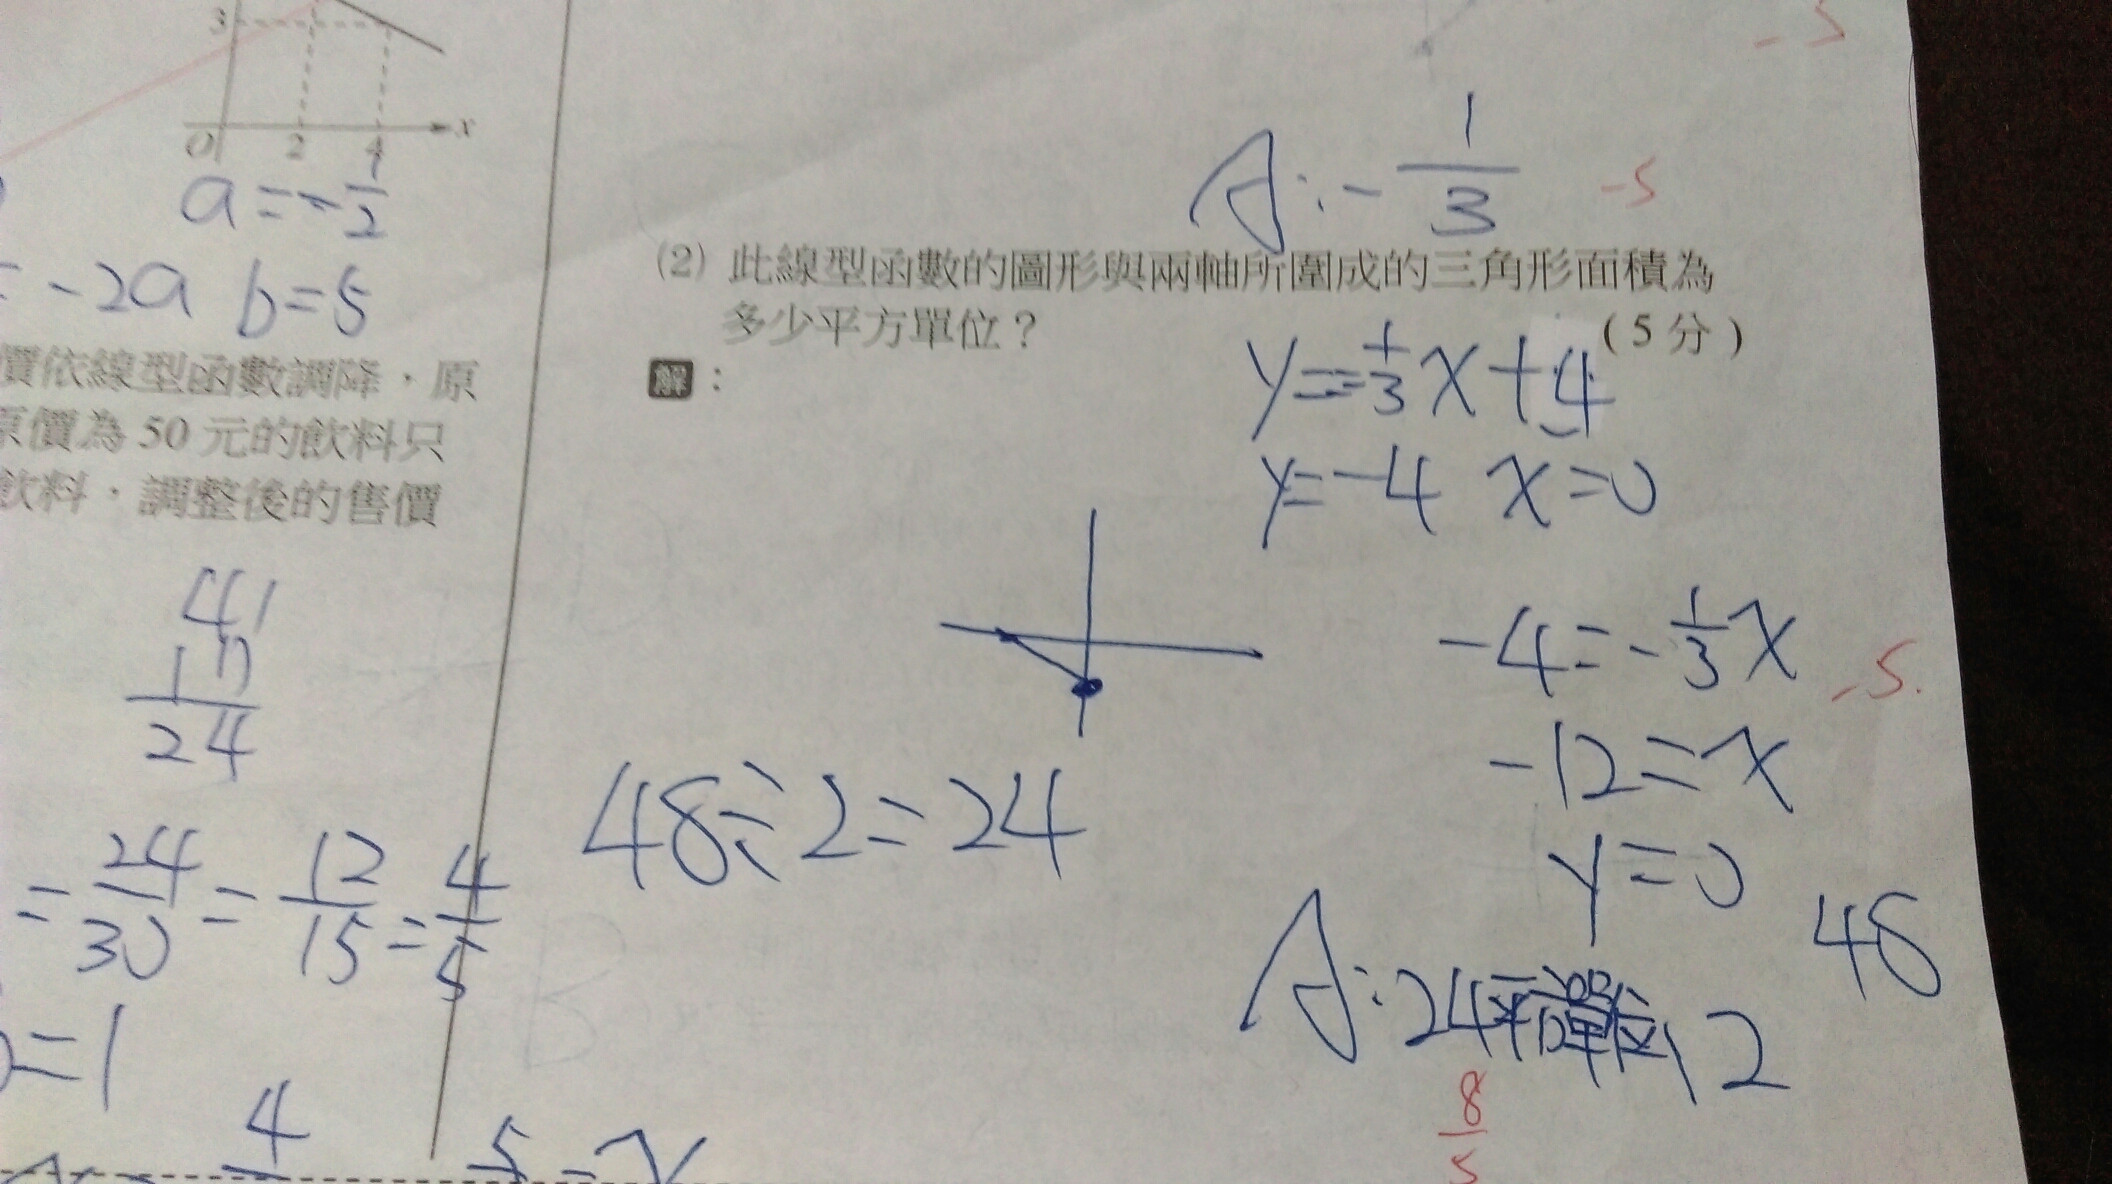 3
O 2 4 x
a=-1/2
=-2a b=5
價依線型函數調降，原
原價為50元的飲料只
飲料，調整後的售價
41
17
24
=24/30=12/15=4/5
=1
4
5 = x
-5
A:-1/3 -5
(2) 此線型函數的圖形與兩軸所圍成的三角形面積為
多少平方單位？ (5分)
解：
y=-1/3x+4
y=-4 x=0
-4=-1/3x -5.
-12=x
y=0
48÷2=24
48
A:24平方單位
12
8/5